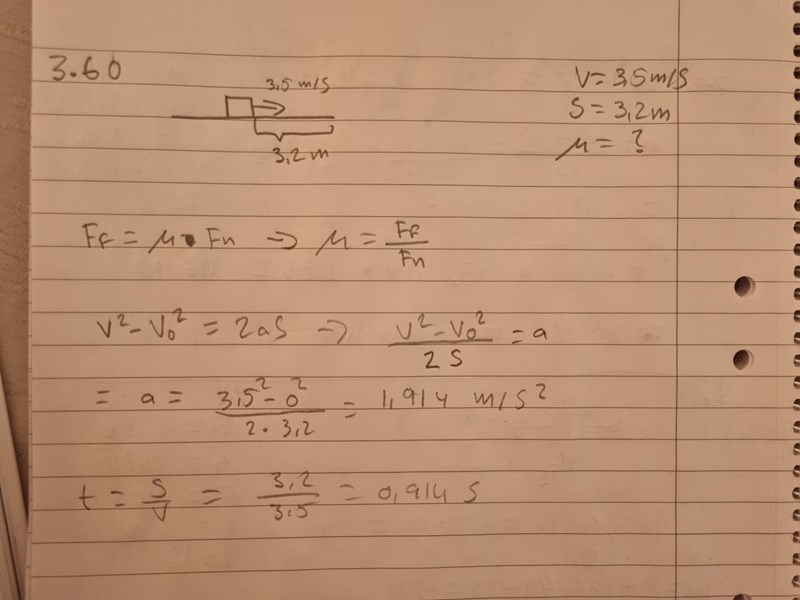 3.60
3,5 m/s
3,2 m
V = 3,5 m/s
S = 3,2 m
μ = ?
Ff = μ • Fn → μ = Ff / Fn
V² - V₀² = 2aS → V² - V₀² / 2S = a
= a = 3,5² - 0² / 2 · 3,2 = 1,914 m/s²
t = S / V = 3,2 / 3,5 = 0,914 S